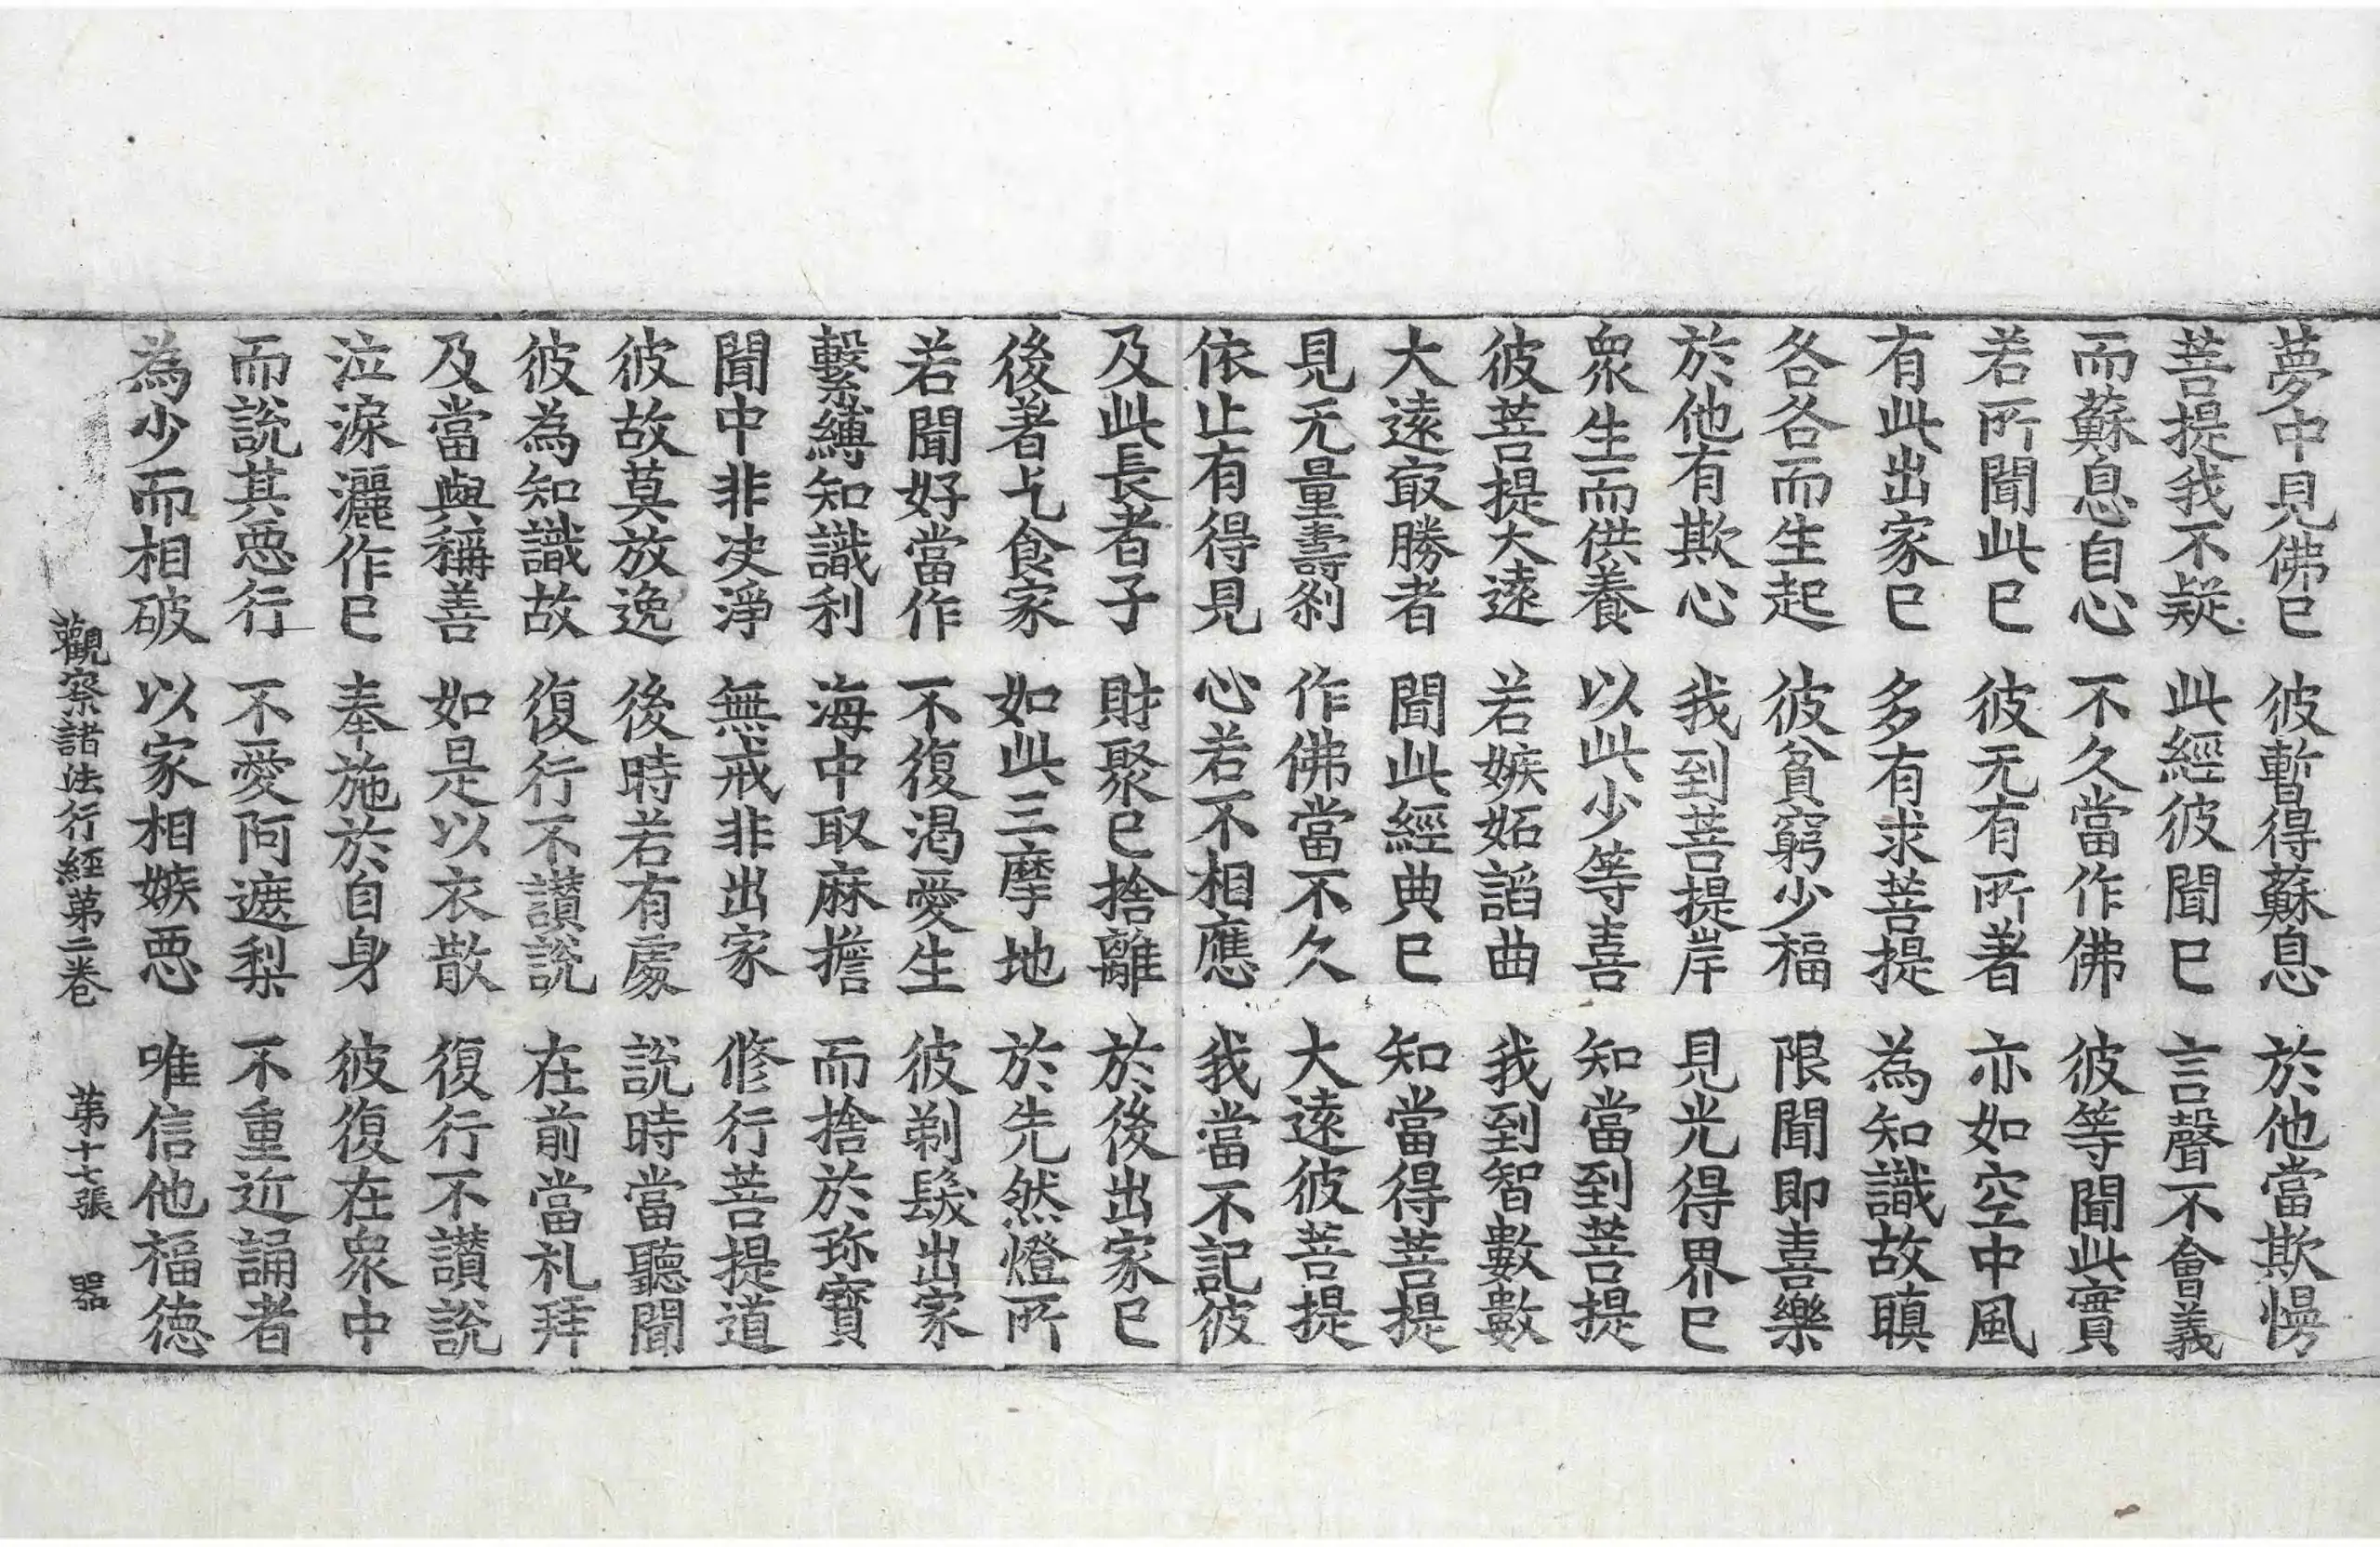 夢中見佛已 彼暫得蘇息 於他當欺慢
菩提我不疑 此經彼聞已 言聲不會義
而蘇息自心 不久當作佛 彼等聞此實
若所聞此已 彼无有所著 亦如空中風
有此出家已 多有求菩提 為知識故瞋
各各而生起 彼貧窮少福 限聞即喜樂
於他有欺心 我到菩提岸 見光得界已
衆生而供養 以此少等喜 知當到菩提
彼菩提大遠 若嫉妬謟曲 我到智數數
大遠㝡勝者 聞此經典已 知當得菩提
見无量壽刹 作佛當不久 大遠彼菩提
依止有得見 心若不相應 我當不記彼
及此長者子 財聚已捨離 於後出家已
後著乞食家 如此三摩地 於先然燈所
若聞好當作 不復渴愛生 彼剃髮出家
繫縛知識利 海中取麻擔 而捨於珎寶
聞中非決淨 無戒非出家 修行菩提道
彼故莫放逸 後時若有處 說時當聽聞
彼為知識故 復行不讃說 在前當礼拜
及當與稱善 如是以衣散 復行不讃說
泣淚灑作已 奉施於自身 彼復在衆中
而說其惡行 不愛阿遮梨 不重近誦者
為少而相破 以家相嫉惡 唯信他福徳
觀察諸法行經第二卷 第十七張 器